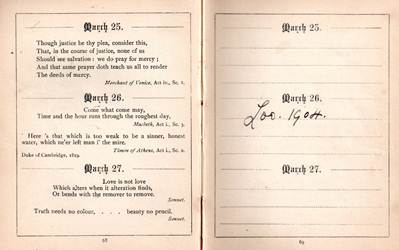 March 25.
Though justice be thy plea, consider this,
That, in the course of justice, none of us
Should see salvation: we do pray for mercy;
And that same prayer doth teach us all to render
The deeds of mercy.
Merchant of Venice, Act iv., Sc. 1.
March 26.
Come what come may,
Time and the hour runs through the roughest day.
Macbeth, Act i., Sc. 3.
Here 's that which is too weak to be a sinner, honest
water, which ne'er left man i' the mire.
Timon of Athens, Act i., Sc. 2.
Duke of Cambridge, 1819.
March 27.
Love is not love
Which alters when it alteration finds,
Or bends with the remover to remove.
Sonnet.
Truth needs no colour, . . . beauty no pencil.
Sonnet.
68
March 25.
March 26.
Loo. 1904.
March 27.
69